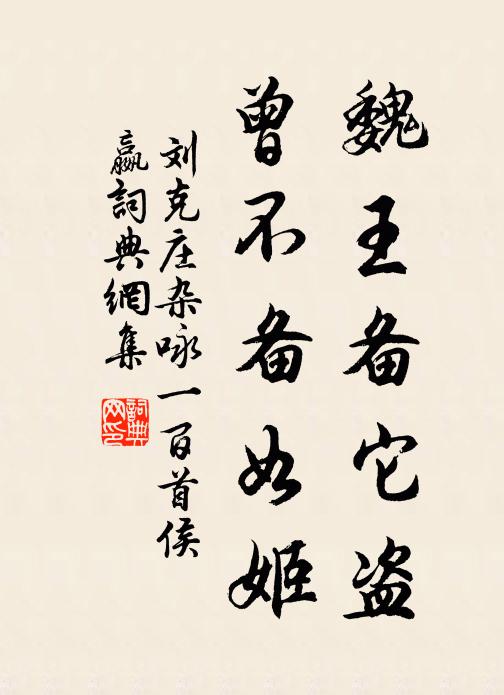 魏王备它盗
曾不备如姬
刘克庄杂咏一百首侯
嬴詞典網集
詞典
网印